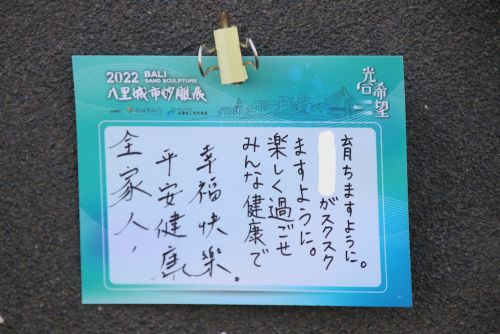 2022 BALI
SAND SCULPTURE
八里城市沙雕展
光合希望
全家人，
平安健康
幸福快樂。
みんな健康で
楽しく過ごせ
ますように。
がスクスク
育ちますように。